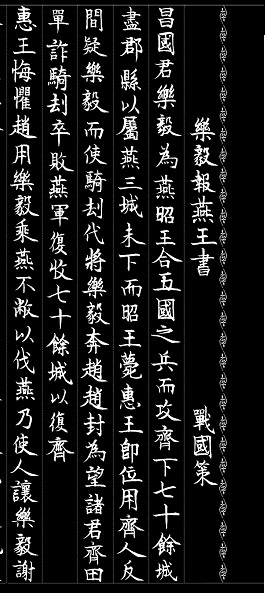 樂毅報燕王書 戰國策
昌國君樂毅為燕昭王合五國之兵而攻齊下七十餘城
盡郡縣以屬燕三城未下而昭王薨惠王即位用齊人反
間疑樂毅而使騎刦代將樂毅奔趙趙封為望諸君齊田
單詐騎刦卒敗燕軍復收七十餘城以復齊
惠王悔懼趙用樂毅乘燕不敝以伐燕乃使人讓樂毅謝